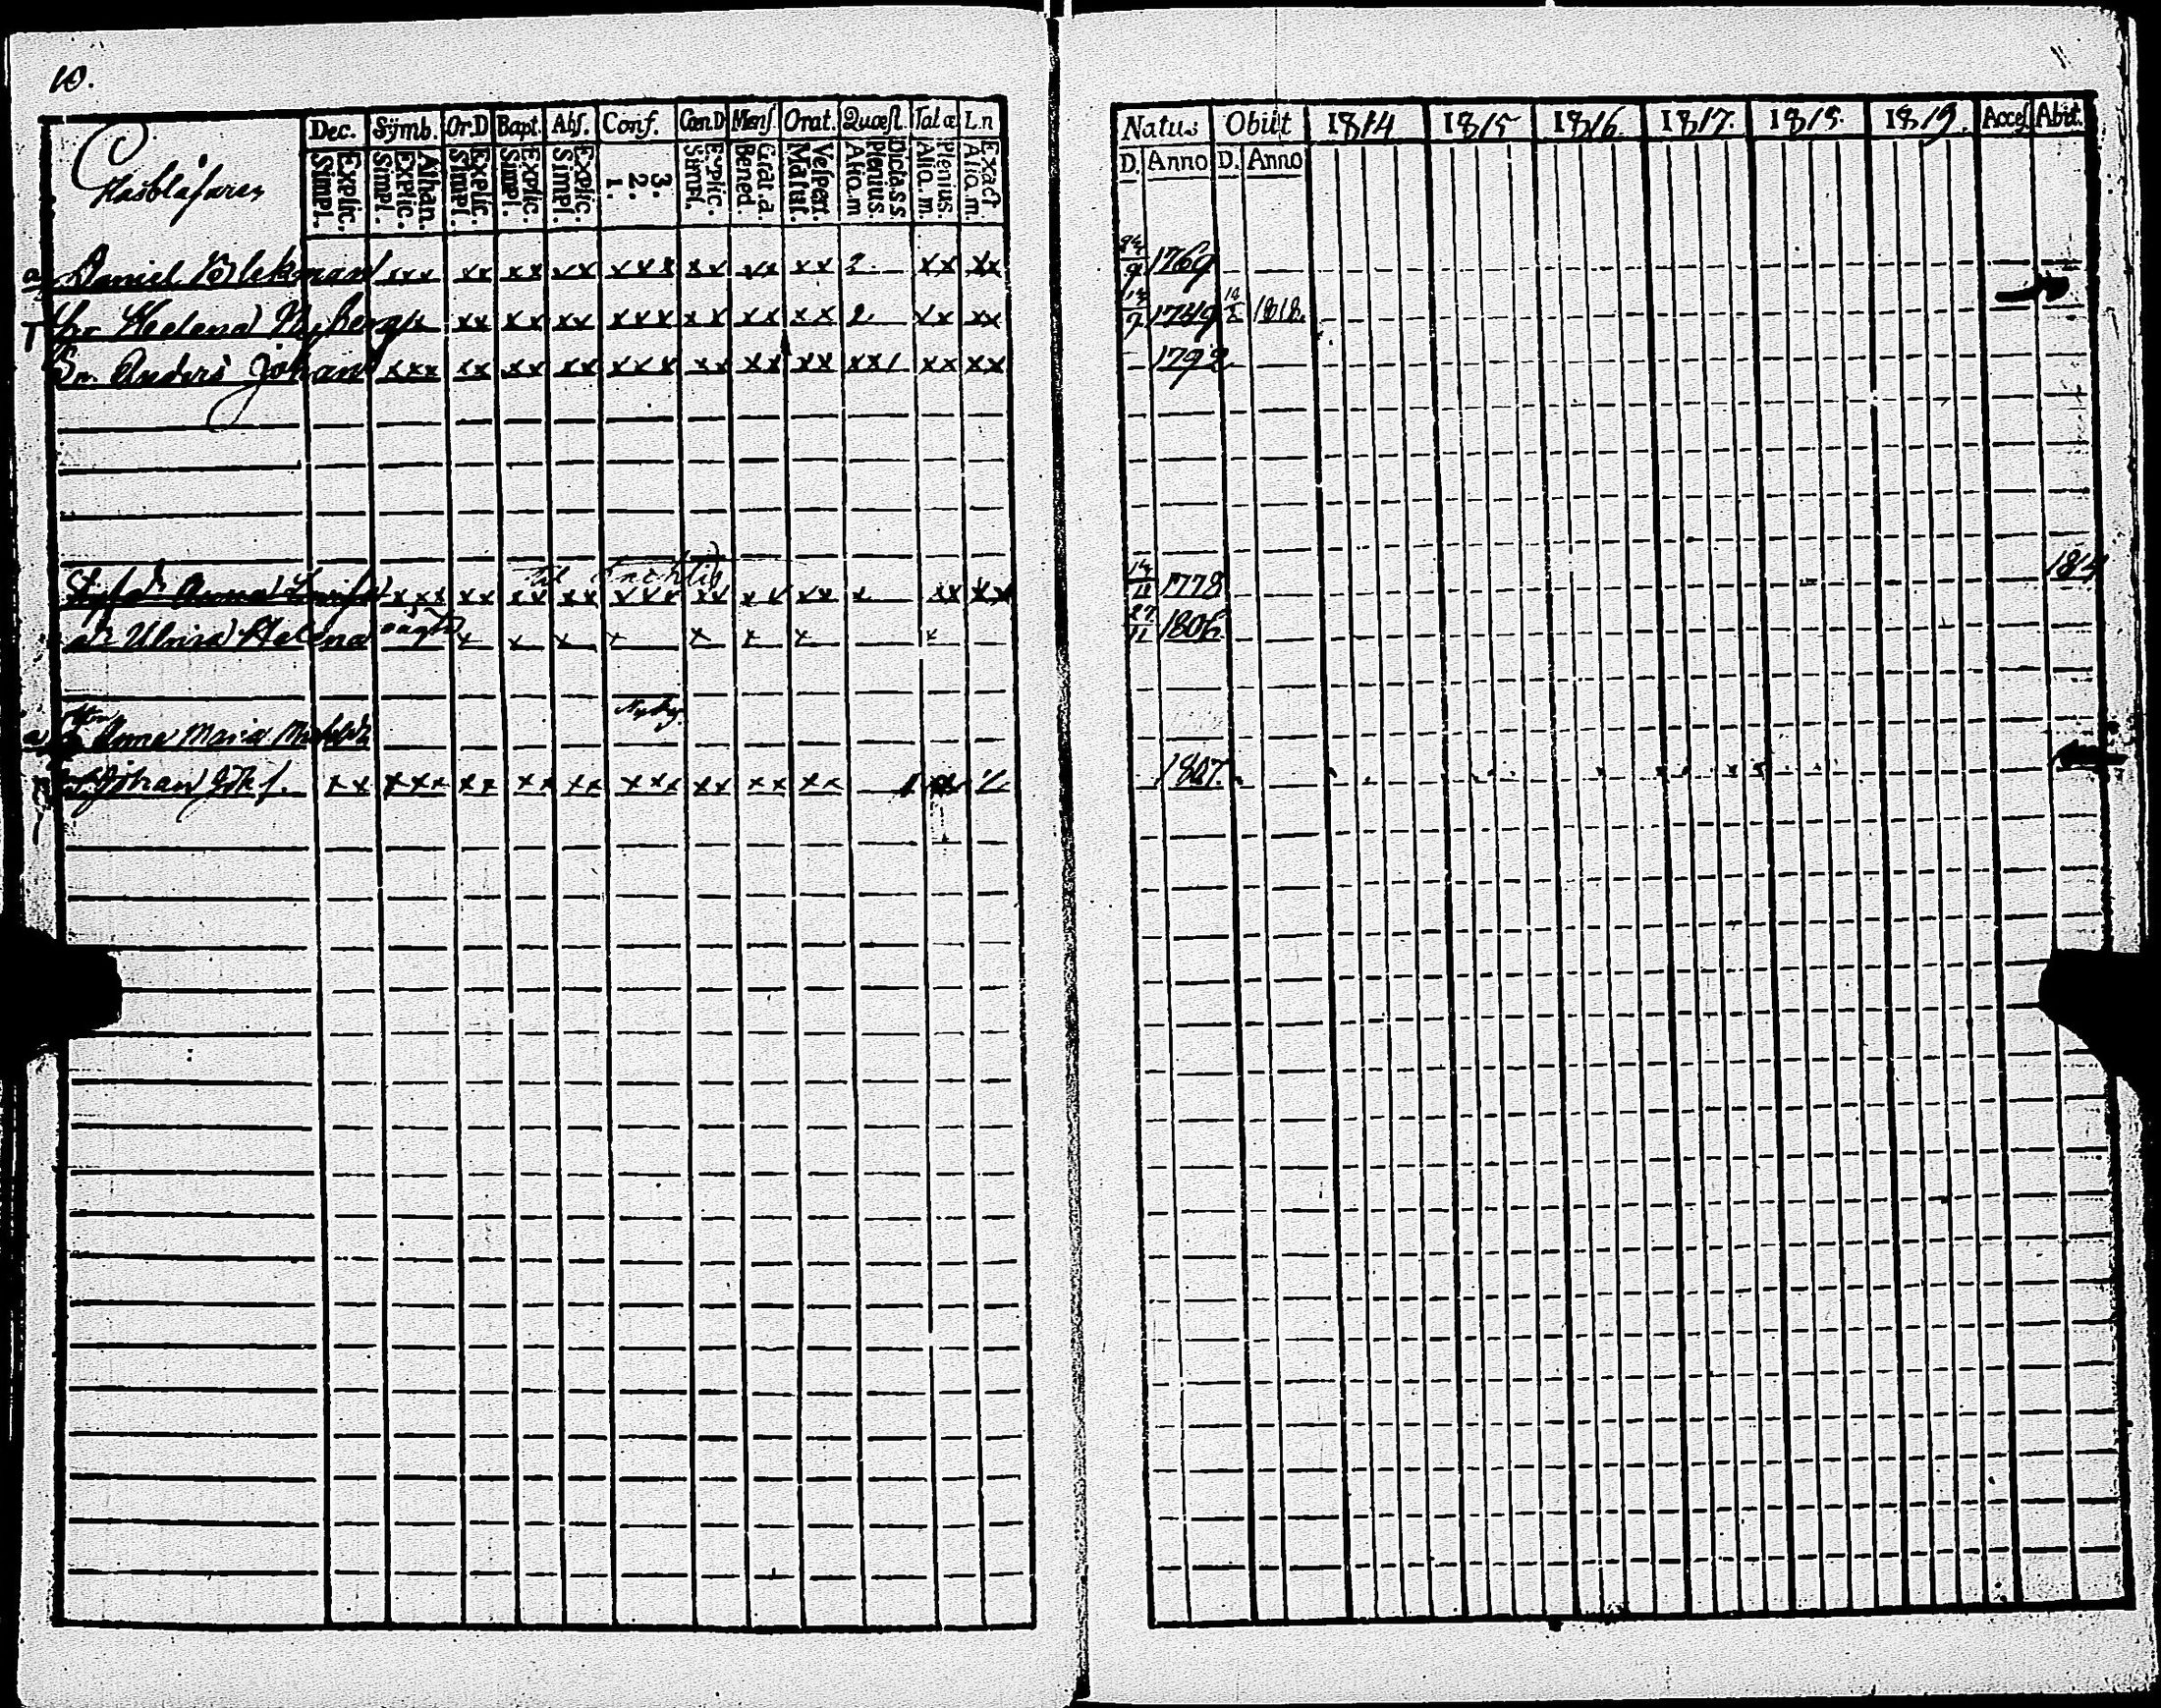 10.
Dec. Symb. Or.D Bapt. Abs. Conf. Cœn.D Mens. Orat. Quæst. Talæ L.n
Natus Obiit 1814 1815 1816 1817. 1818. 1819. Acces Abiit.
Glasblåsaren
Explic. Simpl. Athan. Explic. Simpl. Explic. Simpl. Explic. Simpl. Explic. Simpl. 3. 2. 1. Explic. Simpl. Grat. a. Bened. Vespert. Matut. Dicta s.s. Plenius. Alio. m Plenius. Alio. m. Exact Alio. m.
D. Anno D. Anno
a Daniel Blekman xxx xx xx xx xxx xx xx xx 2 xx xx 24/9 1769
Hu Helena Nyberg x xx xx xx xxx xx xx xx 2 xx xx 1749 1818
Sn. Anders Johan xxx xx xx xx xxx xx xx xx xx/ xx xx 1792
Anna xxx xx xx xx xxx xx xx xx x xx xx 14/11 1778 1814
Ulrica Helena x x x x x x x x 27/11 1806
a Anna Maria
Johan xx xxx xx xx xx xxx xx xx xx 1807.